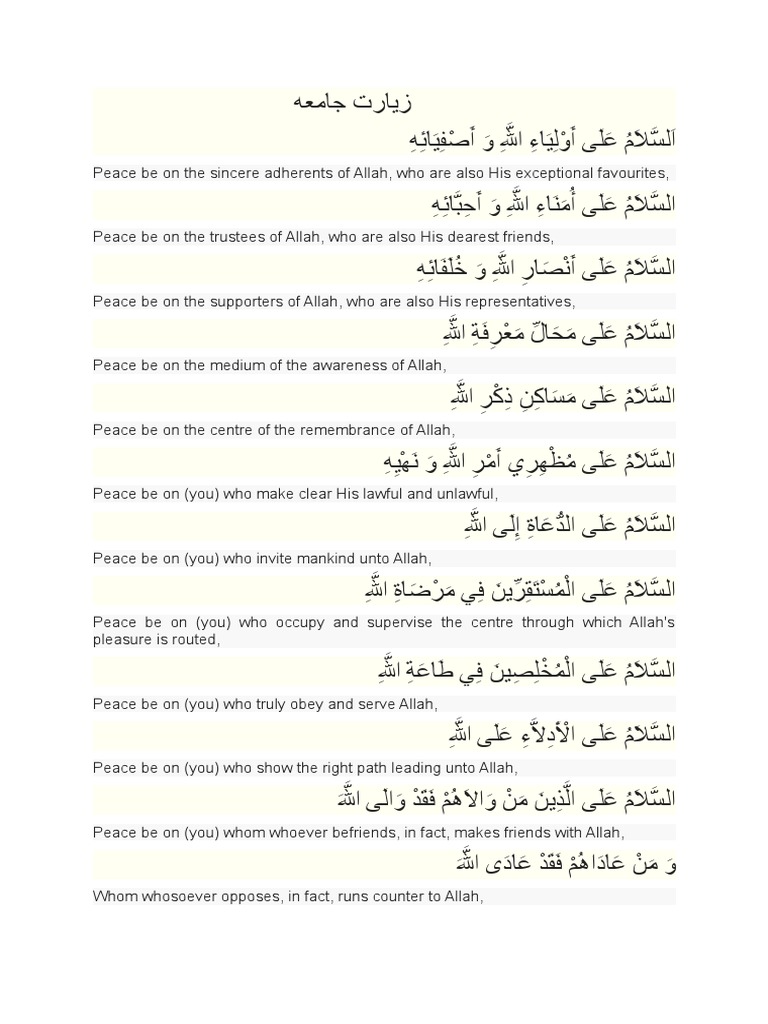 زيارت جامعه
اَلسَّلاَمُ عَلَى أَوْلِيَاءِ اللَّهِ وَ أَصْفِيَائِهِ
Peace be on the sincere adherents of Allah, who are also His exceptional favourites,
السَّلاَمُ عَلَى أُمَنَاءِ اللَّهِ وَ أَحِبَّائِهِ
Peace be on the trustees of Allah, who are also His dearest friends,
السَّلاَمُ عَلَى أَنْصَارِ اللَّهِ وَ خُلَفَائِهِ
Peace be on the supporters of Allah, who are also His representatives,
السَّلاَمُ عَلَى مَحَالِّ مَعْرِفَةِ اللَّهِ
Peace be on the medium of the awareness of Allah,
السَّلاَمُ عَلَى مَسَاكِنِ ذِكْرِ اللَّهِ
Peace be on the centre of the remembrance of Allah,
السَّلاَمُ عَلَى مُظْهِرِي أَمْرِ اللَّهِ وَ نَهْيِهِ
Peace be on (you) who make clear His lawful and unlawful,
السَّلاَمُ عَلَى الدُّعَاةِ إِلَى اللَّهِ
Peace be on (you) who invite mankind unto Allah,
السَّلاَمُ عَلَى الْمُسْتَقِرِّينَ فِي مَرْضَاةِ اللَّهِ
Peace be on (you) who occupy and supervise the centre through which Allah's
pleasure is routed,
السَّلاَمُ عَلَى الْمُخْلِصِينَ فِي طَاعَةِ اللَّهِ
Peace be on (you) who truly obey and serve Allah,
السَّلاَمُ عَلَى الْأَدِلاَّءِ عَلَى اللَّهِ
Peace be on (you) who show the right path leading unto Allah,
السَّلاَمُ عَلَى الَّذِينَ مَنْ وَالاَهُمْ فَقَدْ وَالَى اللَّهَ
Peace be on (you) whom whoever befriends, in fact, makes friends with Allah,
وَ مَنْ عَادَاهُمْ فَقَدْ عَادَى اللَّهَ
Whom whosoever opposes, in fact, runs counter to Allah,